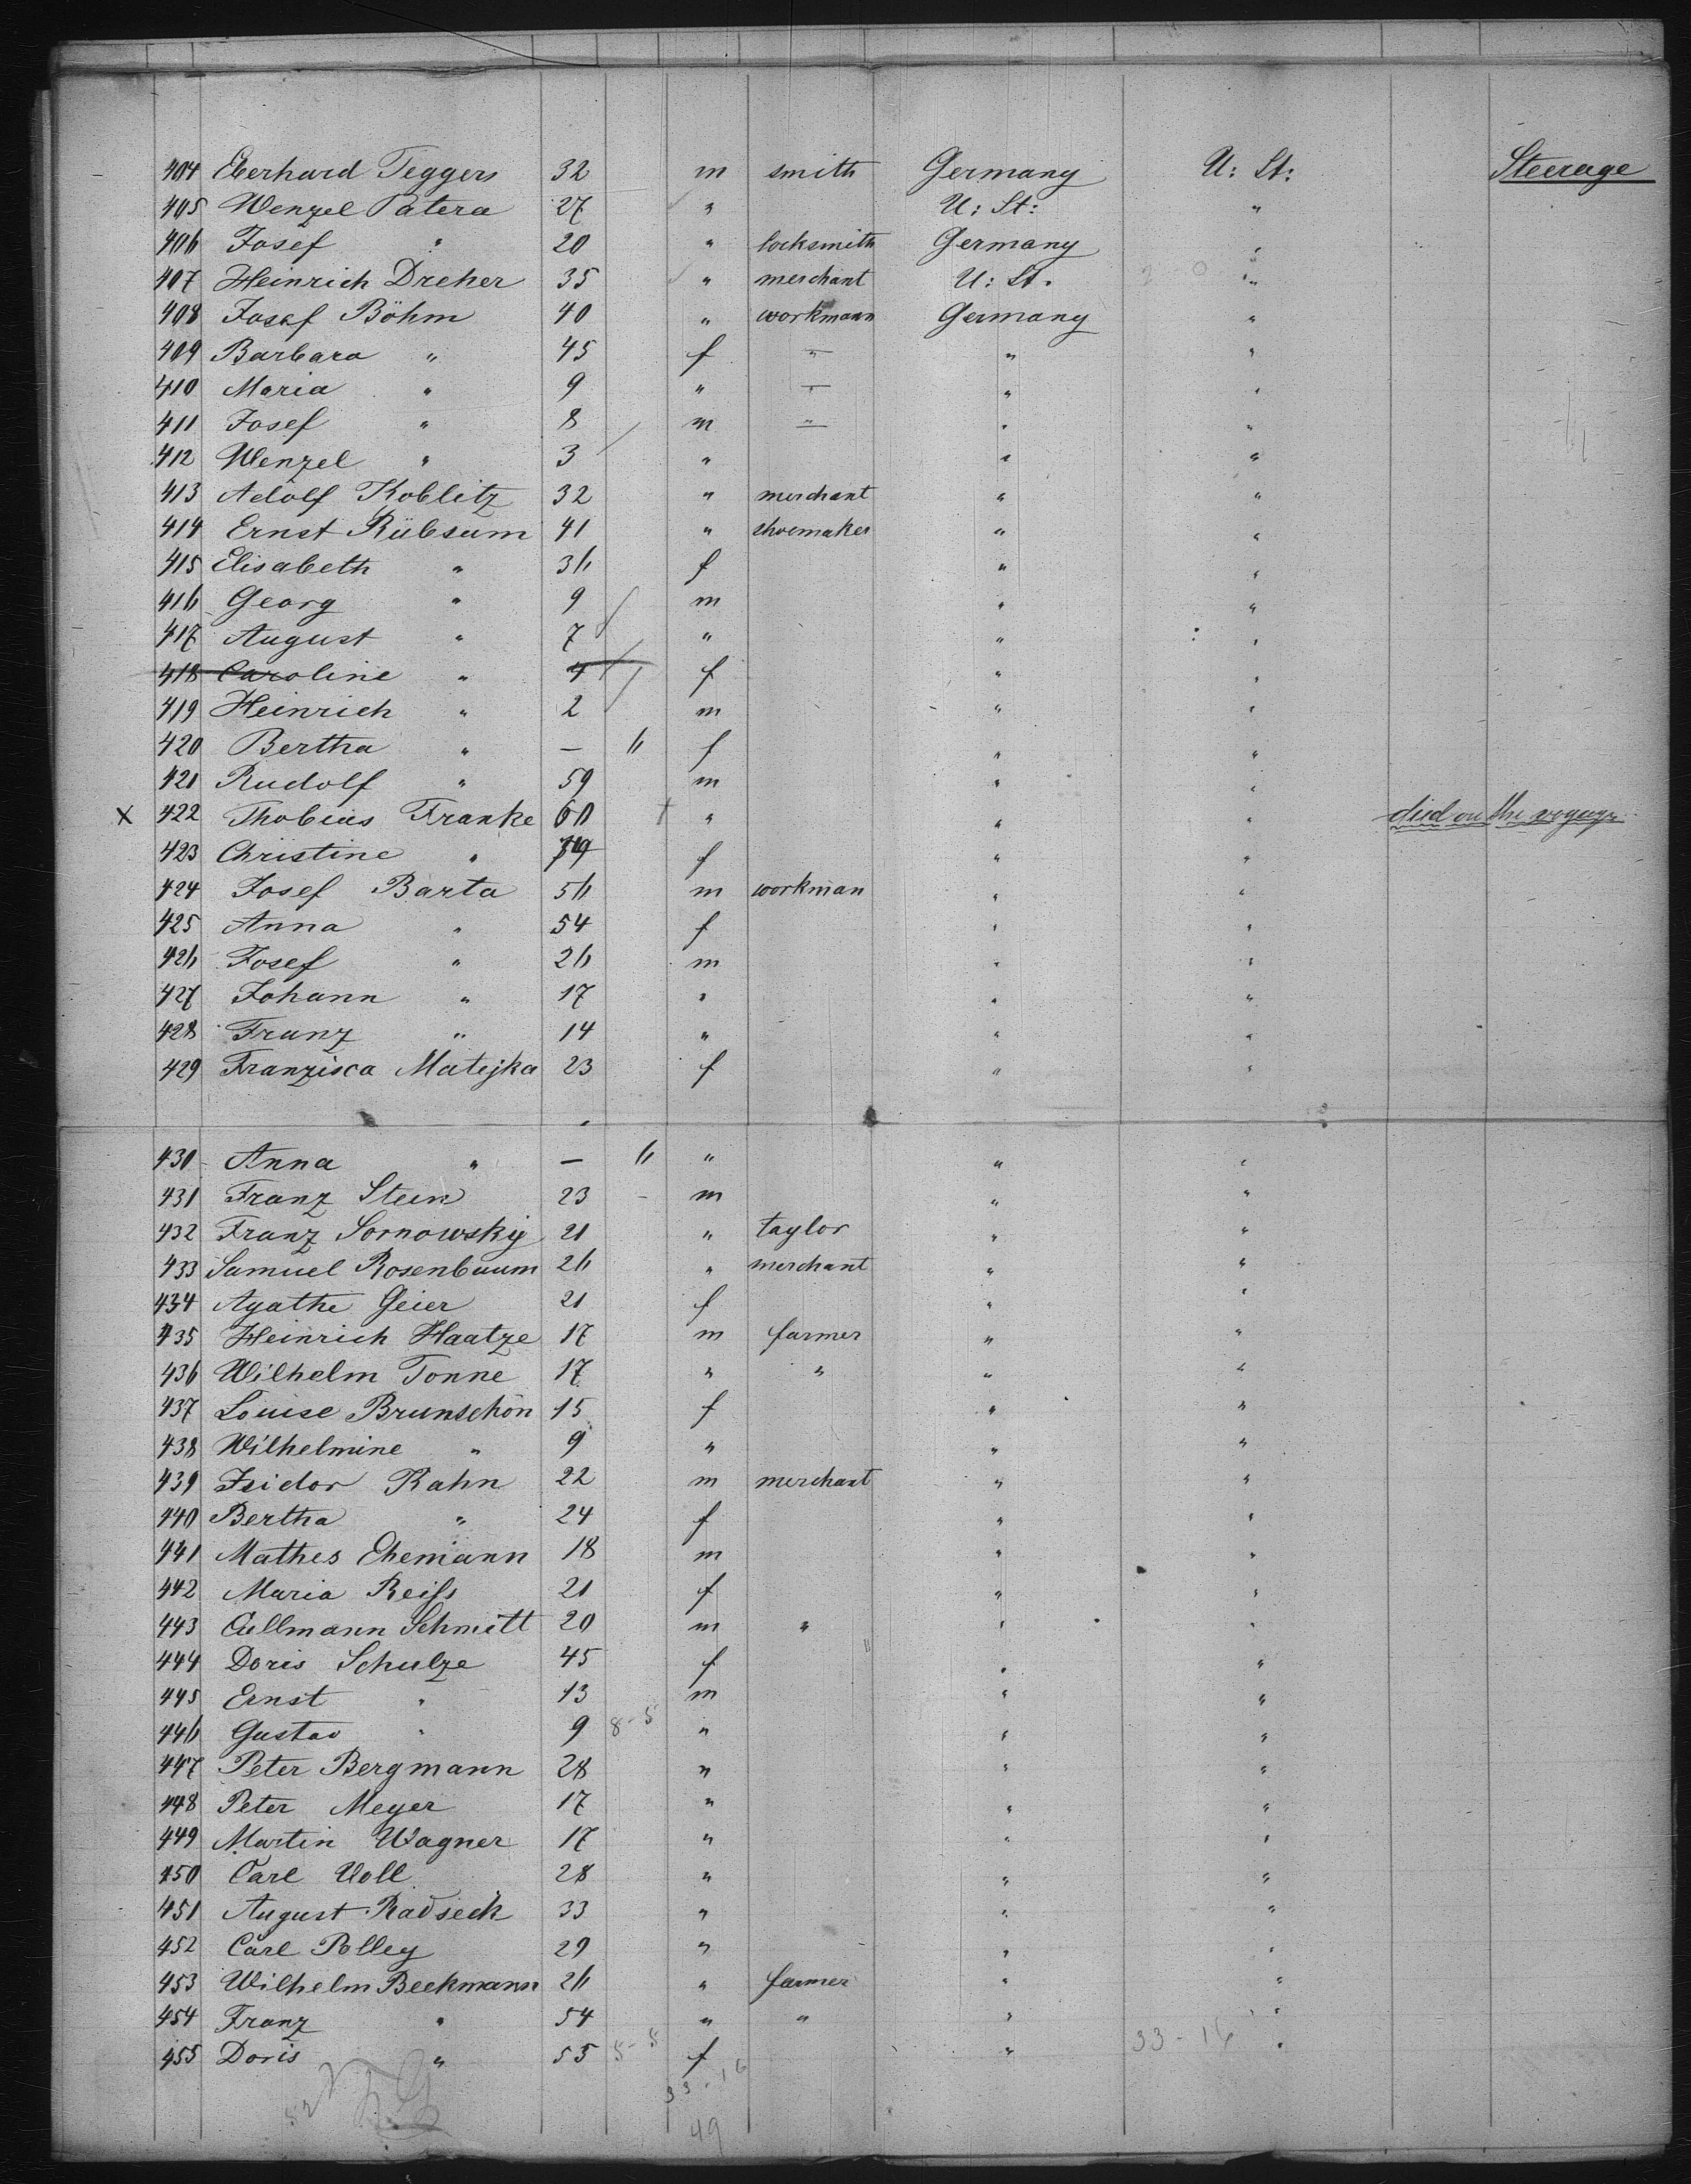 404 Eberhard Teggers 32 m smith Germany U: St: Steerage
405 Wenzel Patera 27 " U: St: "
406 Josef " 20 " locksmith Germany "
407 Heinrich Dreher 35 " merchant U: St. "
408 Josef Böhm 40 " workmann Germany "
409 Barbara " 45 f " " "
410 Maria " 9 " " " "
411 Josef " 8 m " " "
412 Wenzel " 3 " " "
413 Adolf Koblitz 32 " merchant " "
414 Ernst Rübsam 41 " shoemaker " "
415 Elisabeth " 36 f " "
416 Georg " 9 m " "
417 August " 7 " " "
418 Caroline " 4 f " "
419 Heinrich " 2 m " "
420 Bertha " — 6 f " "
421 Rudolf " 59 m " "
X 422 Thobias Franke 60 " " " died on the voyage
423 Christine " f " "
424 Josef Barta 56 m workman " "
425 Anna " 54 f " "
426 Josef " 26 m " "
427 Johann " 17 " " "
428 Franz " 14 " " "
429 Franzisca Matejka 23 f " "
430 Anna " — 6 " " "
431 Franz Stein 23 - m " "
432 Franz Sornowsky 21 " taylor " "
433 Samuel Rosenbaum 26 " merchant " "
434 Agathe Geier 21 f " "
435 Heinrich Haatze 17 m farmer " "
436 Wilhelm Tonne 17 " " " "
437 Louise Brunschön 15 f " "
438 Wilhelmine " 9 " " "
439 Isidor Rahn 22 m merchant " "
440 Bertha " 24 f " "
441 Mathes Ehemann 18 m " "
442 Maria Reiss 21 f " "
443 Cullmann Schmitt 20 m " " "
444 Doris Schulze 45 f " "
445 Ernst " 13 m " "
446 Gustav " 9 8-5 " " "
447 Peter Bergmann 28 " " "
448 Peter Meyer 17 " " "
449 Martin Wagner 17 " " "
450 Carl Voll 28 " " "
451 August Radseck 33 " " "
452 Carl Polley 29 " " "
453 Wilhelm Beekmann 26 " farmer " "
454 Franz " 54 " " " "
455 Doris " 55 f " 33-16 "
33-16
49